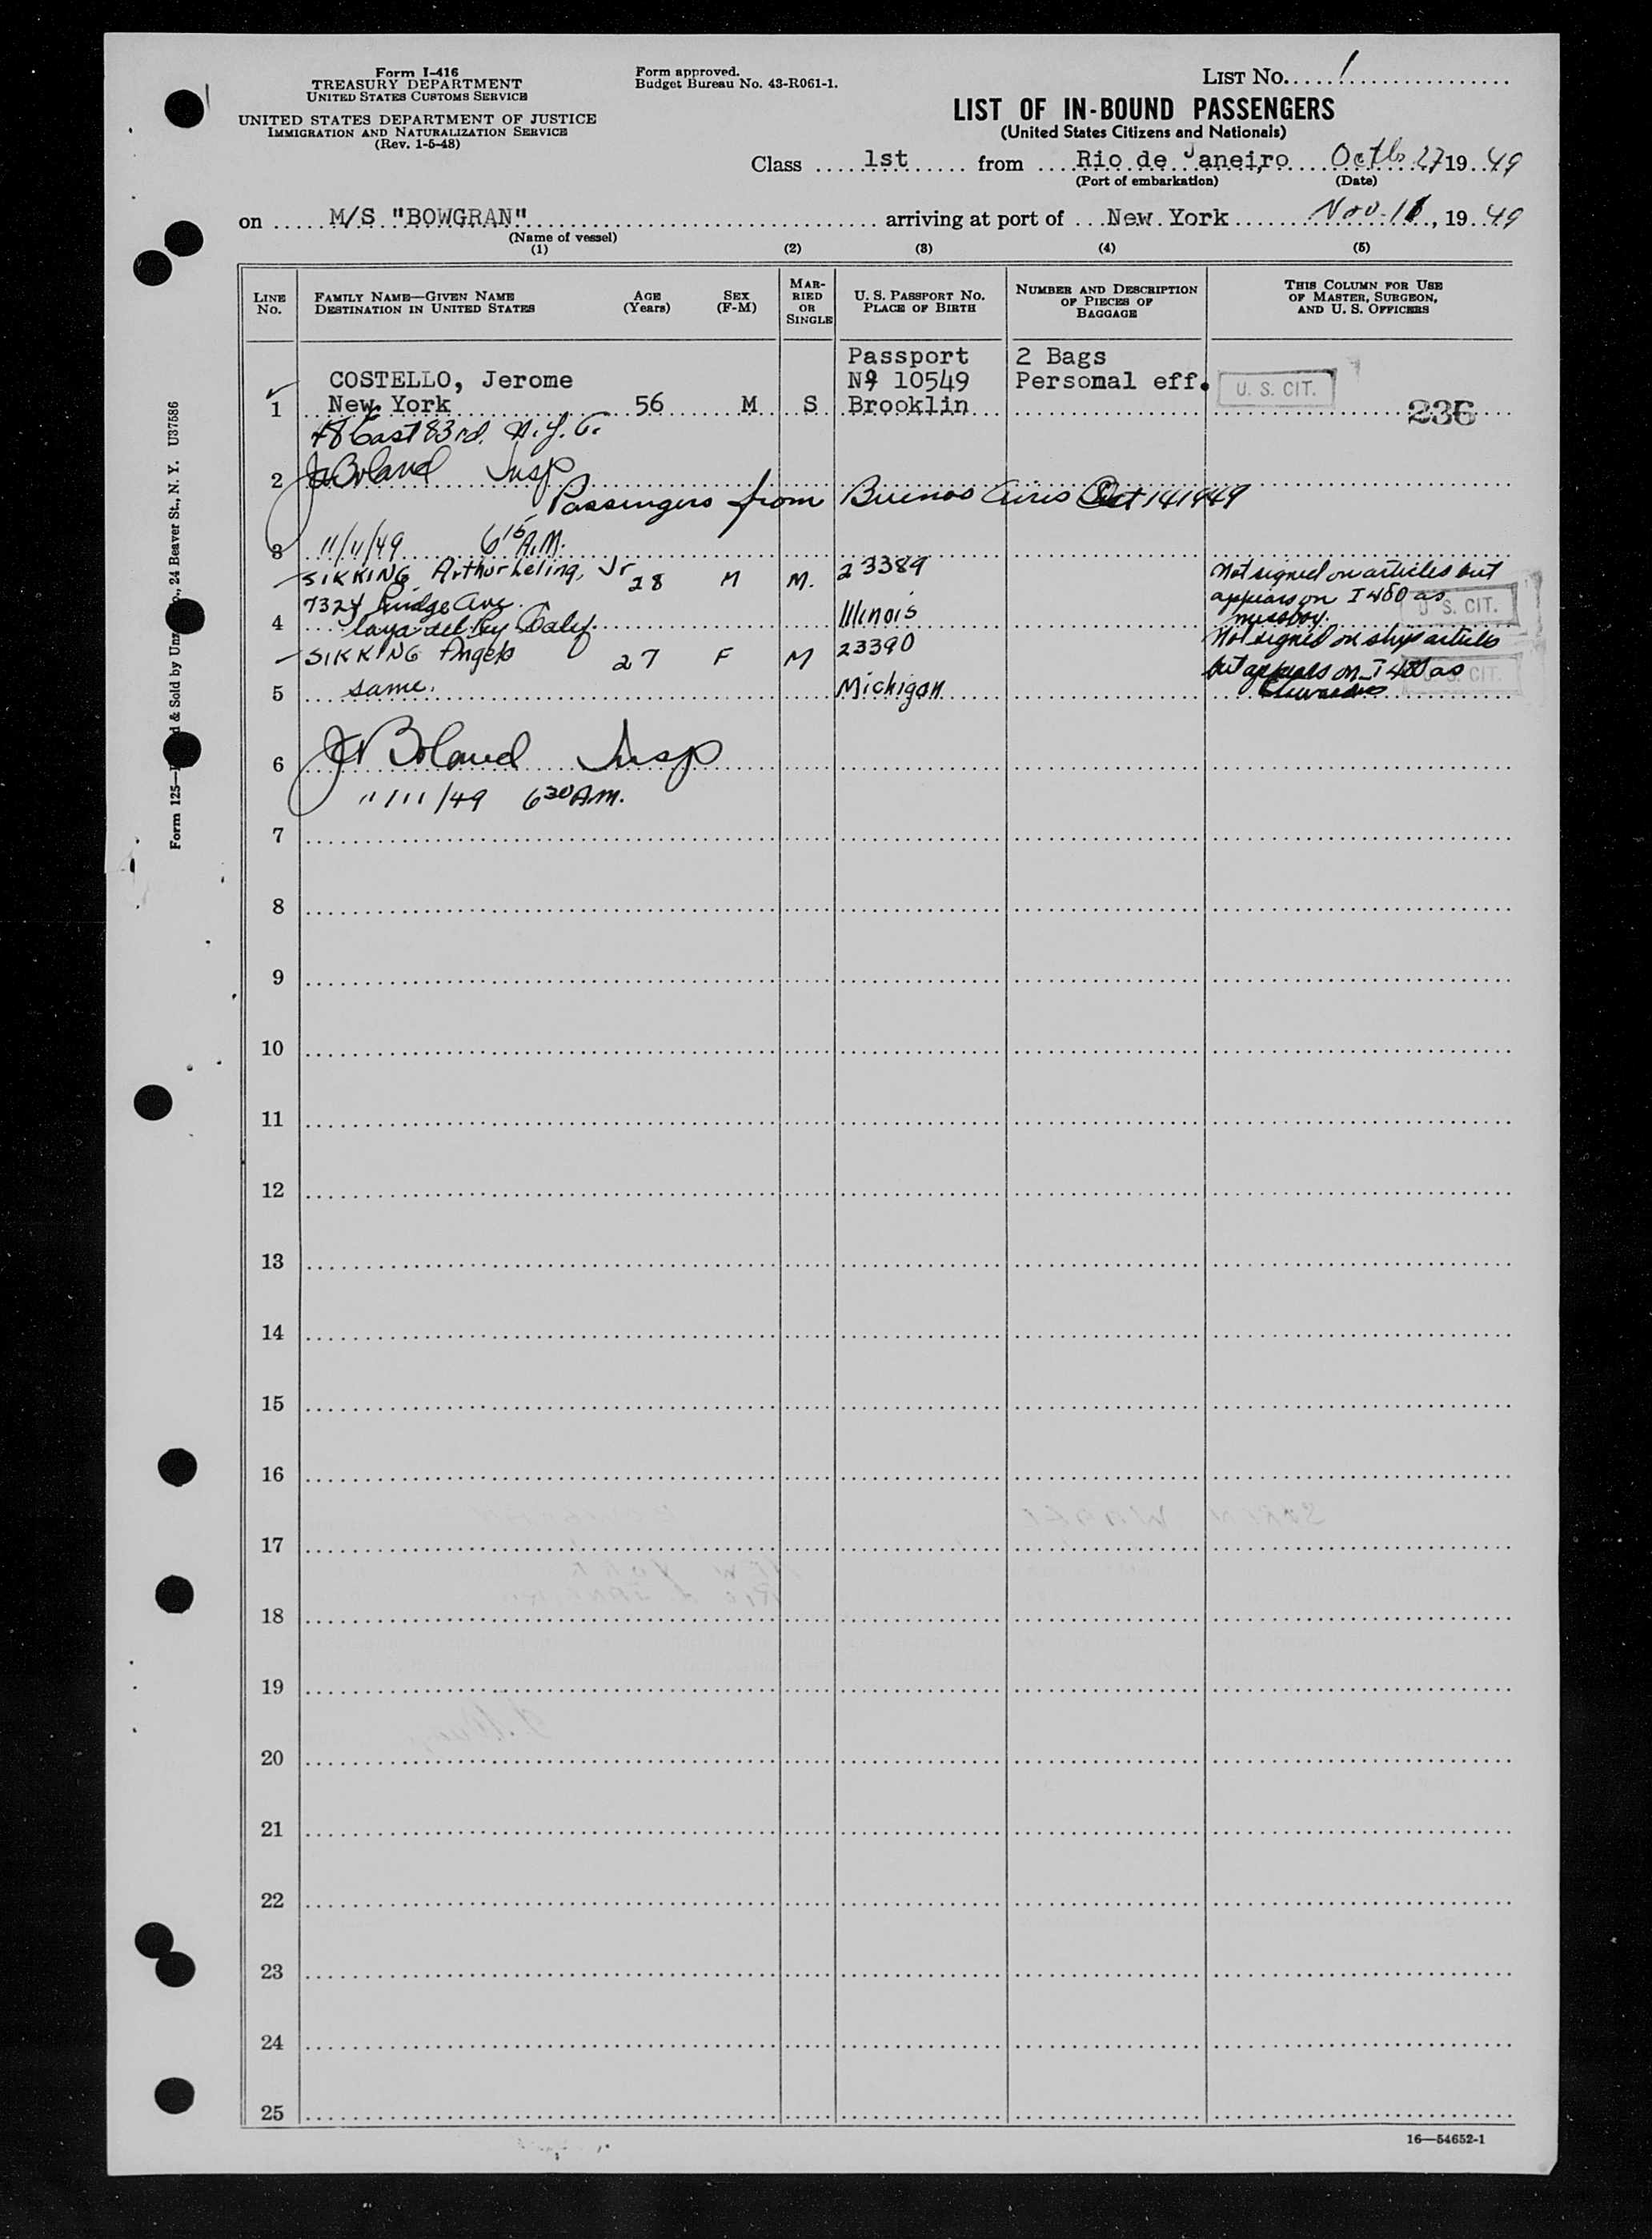 Form I-416
TREASURY DEPARTMENT
UNITED STATES CUSTOMS SERVICE
UNITED STATES DEPARTMENT OF JUSTICE
IMMIGRATION AND NATURALIZATION SERVICE
(Rev. 1-5-48)
Form approved.
Budget Bureau No. 43-R061-1.
LIST No. 1
LIST OF IN-BOUND PASSENGERS
(United States Citizens and Nationals)
Class 1st from Rio de Janeiro, Octb 27 19 49
(Port of embarkation) (Date)
on M/S "BOWGRAN" arriving at port of New York Nov. 11, 19 49
(Name of vessel)
(1) (2) (3) (4) (5)
LINE No. FAMILY NAME—GIVEN NAME DESTINATION IN UNITED STATES AGE (Years) SEX (F-M) MARRIED OR SINGLE U. S. PASSPORT NO. PLACE OF BIRTH NUMBER AND DESCRIPTION OF PIECES OF BAGGAGE THIS COLUMN FOR USE OF MASTER, SURGEON, AND U. S. OFFICERS
Passport 2 Bags
COSTELLO, Jerome Nº 10549 Personal eff. U. S. CIT.
1 New York 56 M S Brooklin 236
48 East 83rd. N.Y.C.
2 J Boland Insp
Passengers from Buenos Aires Oct 14 1949
3 11/11/49 6 15 A.M.
SIKKING, Arthur Jr 28 M M. 23389 Not signed on articles but
7324 Ave. appears on I 480 as U. S. CIT.
4 Playa del Rey Calif. Illinois messboy.
SIKKING Angela 27 F M 23390 Not signed on ship articles
but appears on I 480 as U. S. CIT.
5 same. Michigan Stewardess
6 J Boland Insp
11/11/49 6 30 A.M.
7
8
9
10
11
12
13
14
15
16
17
18
19
20
21
22
23
24
25
16—54652-1
Form 125— & Sold by 24 Beaver St., N. Y. U37586